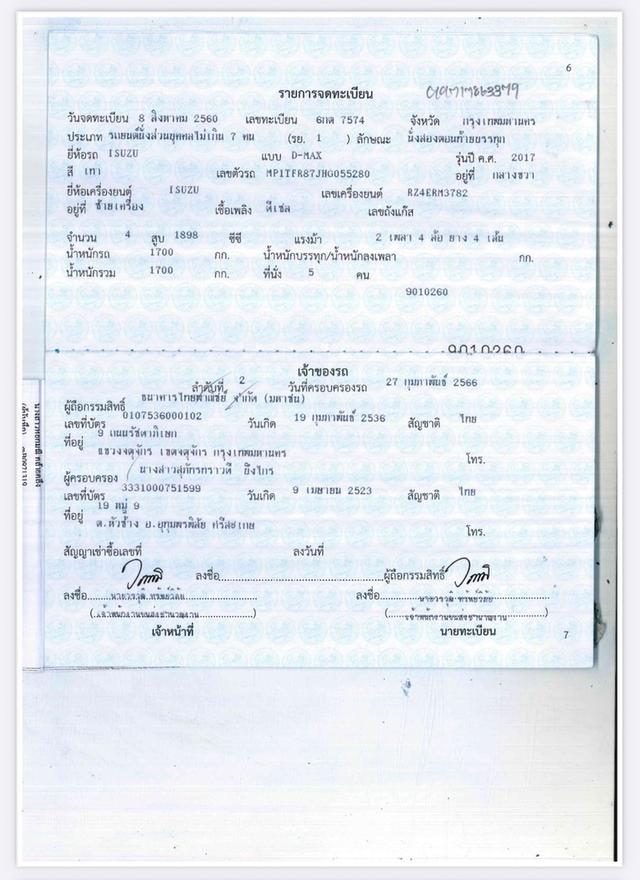 6
รายการจดทะเบียน
วันจดทะเบียน 8 สิงหาคม 2560 เลขทะเบียน 6กต 7574 จังหวัด กรุงเทพมหานคร
ประเภท รถยนต์นั่งส่วนบุคคลไม่เกิน 7 คน (รย. 1 ) ลักษณะ นั่งสองตอนท้ายบรรทุก
ยี่ห้อรถ ISUZU แบบ D-MAX รุ่นปี ค.ศ. 2017
สี เทา เลขตัวรถ MP1TFR87JHG055280 อยู่ที่ กลางขวา
ยี่ห้อเครื่องยนต์ ISUZU เลขเครื่องยนต์ RZ4ERM3782
อยู่ที่ ซ้ายเครื่อง เชื้อเพลิง ดีเซล เลขถังแก๊ส
จำนวน 4 สูบ 1898 ซีซี แรงม้า 2 เพลา 4 ล้อ ยาง 4 เส้น
น้ำหนักรถ 1700 กก. น้ำหนักบรรทุก/น้ำหนักลงเพลา กก.
น้ำหนักรวม 1700 กก. ที่นั่ง 5 คน
9010260
9010260
เจ้าของรถ
ลำดับที่ 2 วันที่ครอบครองรถ 27 กุมภาพันธ์ 2566
ผู้ถือกรรมสิทธิ์ ธนาคารไทยพาณิชย์ จำกัด (มหาชน)
เลขที่บัตร 0107536000102 วันเกิด 19 กุมภาพันธ์ 2536 สัญชาติ ไทย
ที่อยู่ 9 ถนนรัชดาภิเษก
แขวงจตุจักร เขตจตุจักร กรุงเทพมหานคร โทร.
ผู้ครอบครอง นางสาวสุภัทรทราวดี ยิ่งไกร
เลขที่บัตร 3331000751599 วันเกิด 9 เมษายน 2523 สัญชาติ ไทย
ที่อยู่ 19 หมู่ 9
ต.หัวช้าง อ.อุทุมพรพิสัย ศรีสะเกษ โทร.
สัญญาเช่าซื้อเลขที่ ลงวันที่
ลงชื่อ ผู้ถือกรรมสิทธิ์
ลงชื่อ ลงชื่อ
(เจ้าพนักงานขนส่งชำนาญงาน) (เจ้าพนักงานขนส่งชำนาญงาน)
เจ้าหน้าที่ นายทะเบียน
7